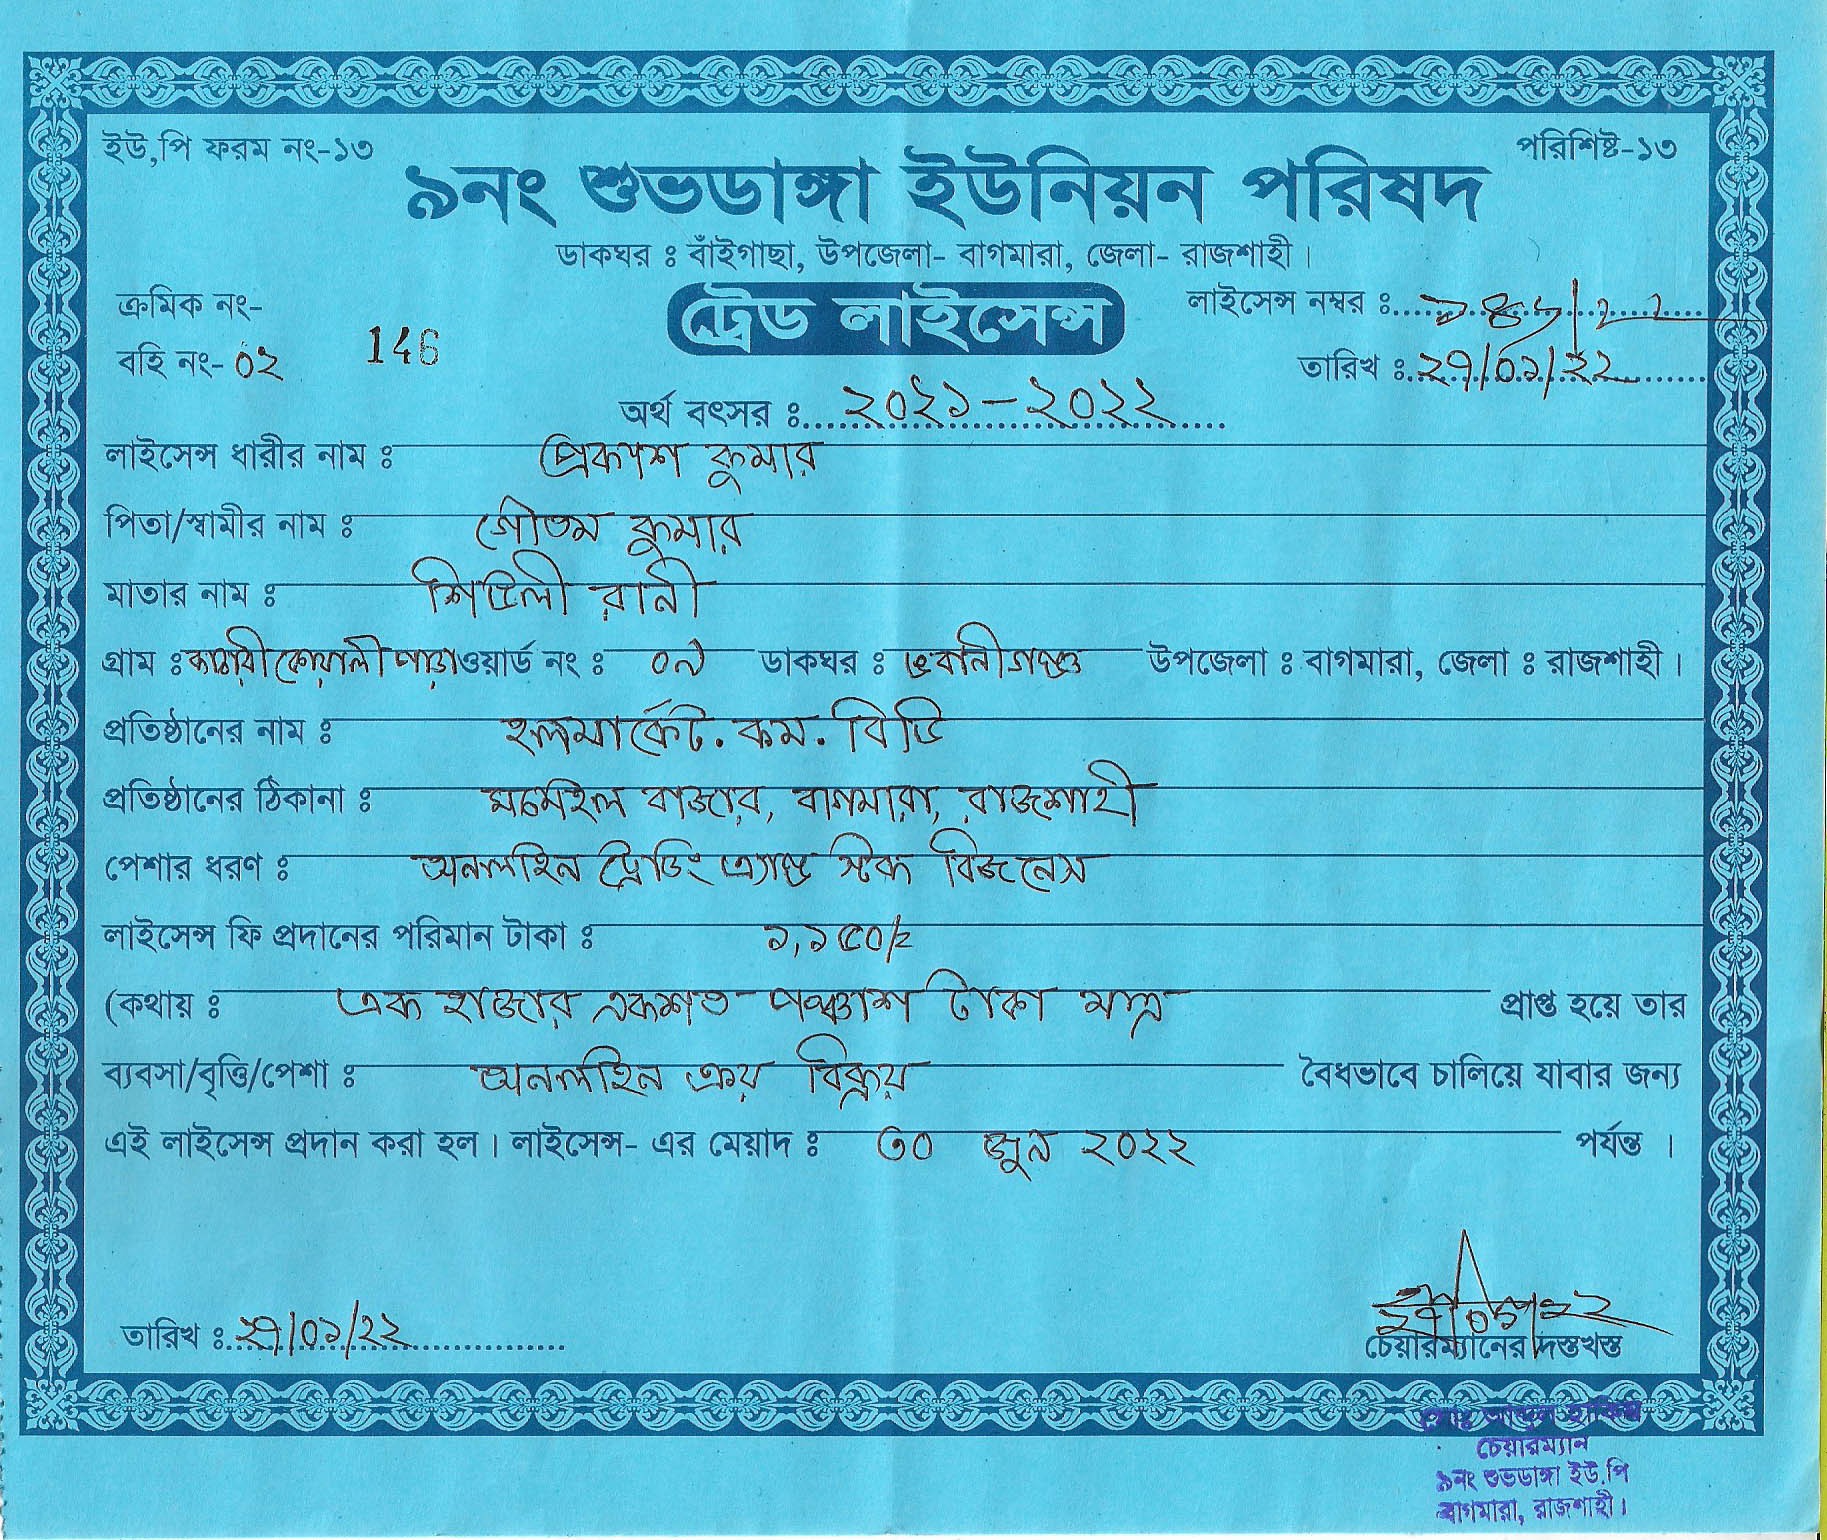 ইউ,পি ফরম নং-১৩
পরিশিষ্ট-১৩
৯নং শুভডাঙ্গা ইউনিয়ন পরিষদ
ডাকঘর ঃ বাঁইগাছা, উপজেলা- বাগমারা, জেলা- রাজশাহী।
ক্রমিক নং-
146
বহি নং- ০২
ট্রেড লাইসেন্স
লাইসেন্স নম্বর ঃ
তারিখ ঃ ২৭/০১/২২
অর্থ বৎসর ঃ ২০২১-২০২২
লাইসেন্স ধারীর নাম ঃ প্রকাশ কুমার
পিতা/স্বামীর নাম ঃ গৌতম কুমার
মাতার নাম ঃ শিউলী রানী
গ্রাম ঃ ওয়ার্ড নং ঃ ডাকঘর ঃ ভবানীগঞ্জ উপজেলা ঃ বাগমারা, জেলা ঃ রাজশাহী।
প্রতিষ্ঠানের নাম ঃ হলমার্কেট. কম. বিডি
প্রতিষ্ঠানের ঠিকানা ঃ মচমইল বাজার, বাগমারা, রাজশাহী
পেশার ধরণ ঃ অনলাইন ট্রেডিং এ্যান্ড স্টক বিজনেস
লাইসেন্স ফি প্রদানের পরিমান টাকা ঃ ১,১৫০/=
(কথায় ঃ এক হাজার একশত পঞ্চাশ টাকা মাত্র প্রাপ্ত হয়ে তার
ব্যবসা/বৃত্তি/পেশা ঃ অনলাইন ক্রয় বিক্রয় বৈধভাবে চালিয়ে যাবার জন্য
এই লাইসেন্স প্রদান করা হল। লাইসেন্স- এর মেয়াদ ঃ ৩০ জুন ২০২২ পর্যন্ত ।
তারিখ ঃ ২৭/০১/২২
চেয়ারম্যানের দস্তখস্ত
মোঃ আব্দুল হাকিম
চেয়ারম্যান
৯নং শুভডাঙ্গা ইউ.পি
বাগমারা, রাজশাহী।